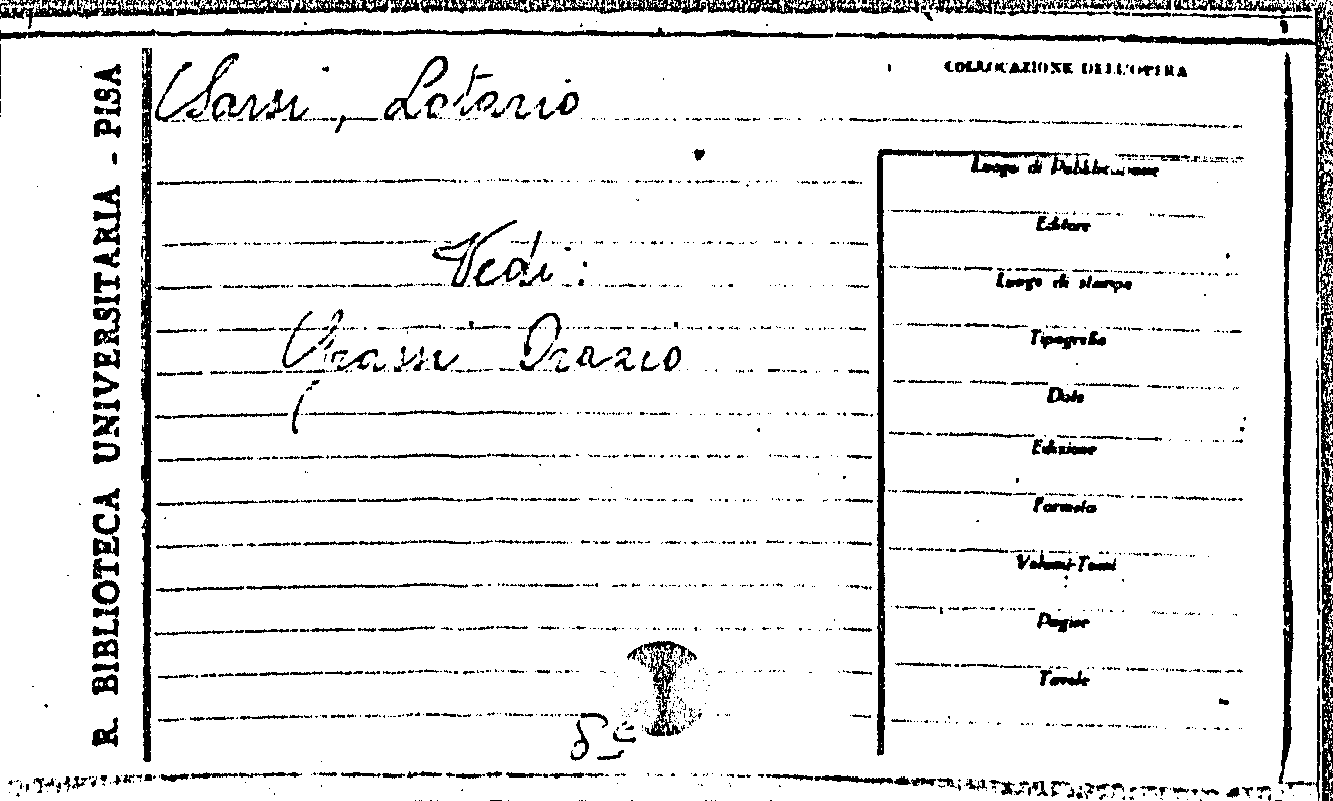 R. BIBLIOTECA UNIVERSITARIA - PISA
Sarsi, Lotario
COLLOCAZIONE DELL'OPERA
Vedi:
Grassi Orazio
Luogo di Pubblicazione
Editore
Luogo di stampa
Tipografia
Data
Edizione
Formato
Volumi-Tomi
Pagine
Tavole